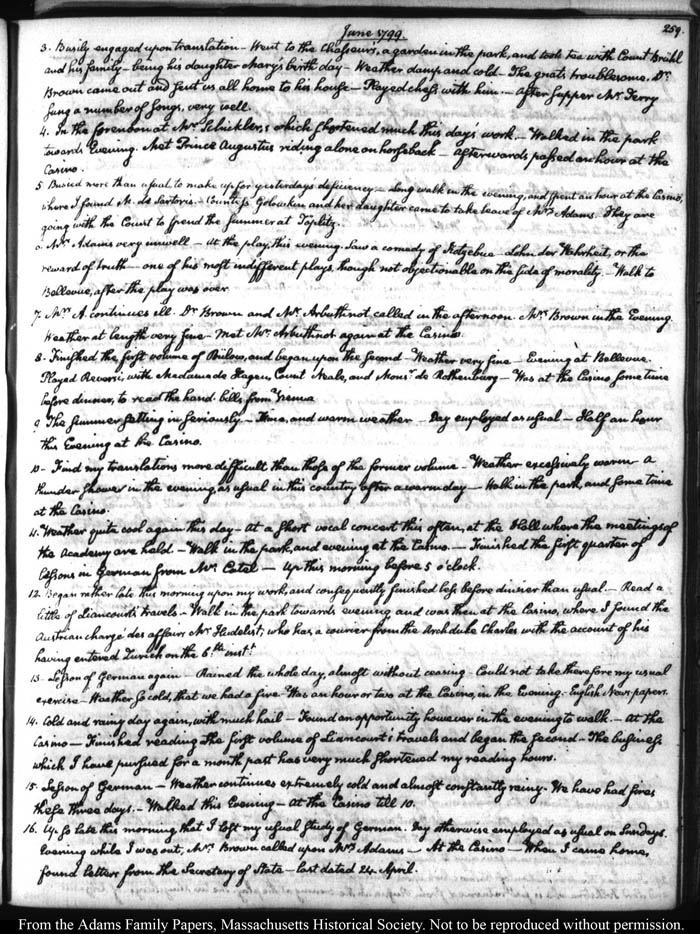 June 1799.
259.
3. Busily engaged upon translation – Went to the Chasseur's, a garden in the park, and took tea with Count Brühl
and his family – being his daughter Mary's birth day – Weather damp and cold – The gnats troublesome. Dr.
Brown came out and sent us all home to his house – Played chess with him – After supper Mr. Terry
sung a number of songs, very well.
4. In the forenoon at Mr. Schickler's which shortened much this day's work – Walked in the park
towards Evening. Met Prince Augustus riding alone on horseback – Afterwards passed an hour at the
Casino.
5. Busied more than usual to make up for yesterdays deficiency – Long walk in the evening, and spent an hour at the Casino,
where I found M. de Sartoris – Countess Golowkin and her daughter came to take leave of Mrs. Adams. They are
going with the Court to spend the summer at Töplitz.
6. Mrs. Adams very unwell – At the play, this evening. Saw a comedy of Kotzebue – Lohn der Wahrheit, or the
reward of truth – one of his most indifferent plays, though not objectionable on the side of morality – Walk to
Bellevue, after the play was over.
7. Mrs. A. continues ill. Dr. Brown and Mr. Arbuthnot called in the afternoon. Mrs. Brown in the Evening
Weather at length very fine – Met Mr. Arbuthnot again at the Casino.
8. Finished the first volume of Bülow, and began upon the second – Weather very fine – Evening at Bellevue.
Played Reversi, with Madame de Hagen, Count Neale, and Monsr. de Rothenburg – Was at the Casino some time
before dinner, to read the hand-bills from Vienna
9. The summer setting in seriously – Fine, and warm weather – Day employed as usual – Half an hour
this Evening at the Casino.
10. Find my translations more difficult than those of the former volume – Weather excessively warm – a
thunder shower in the evening, as usual in this country after a warm day – Walk in the park, and some time
at the Casino.
11. Weather quite cool again this day – At a short vocal concert this afternn, at the Hall where the meetings of
the Academy are held – Walk in the park, and evening at the Casino – Finished the first quarter of
Lessons in German from Mr. Catel – Up this morning before 5 o'clock.
12. Began rather late this morning upon my work, and consequently finished less before dinner than usual – Read a
little of Liancourt's travels – Walk in the park towards evening and was then at the Casino, where I found the
Austrian chargé des affairs Mr. Hudelist; who has a courier from the Arch duke Charles with the account of his
having entered Zurich on the 6th. instt.
13. Lesson of German again – Rained the whole day, almost without ceasing – Could not take therefore my usual
exercise – Weather so cold, that we had a fire – Was an hour or two at the Casino, in the Evening. English News-papers.
14. Cold and rainy day again, with much hail – Found an opportunity however in the evening to walk – At the
Casino – Finished reading the first volume of Liancourt's travels and began the second – The business
which I have pursued for a month past has very much shortened my reading hours.
15. Lesson of German – Weather continues extremely cold and almost constantly rainy. We have had fires
these three days. – Walked this Evening – At the Casino till 10.
16. Up so late this morning that I lost my usual study of German. Day otherwise employed as usual on Sundays.
Evening while I was out, Mrs. Brown called upon Mrs. Adams – At the Casino – When I came home,
found letters from the Secretary of State – last dated 24 April.
From the Adams Family Papers, Massachusetts Historical Society. Not to be reproduced without permission.